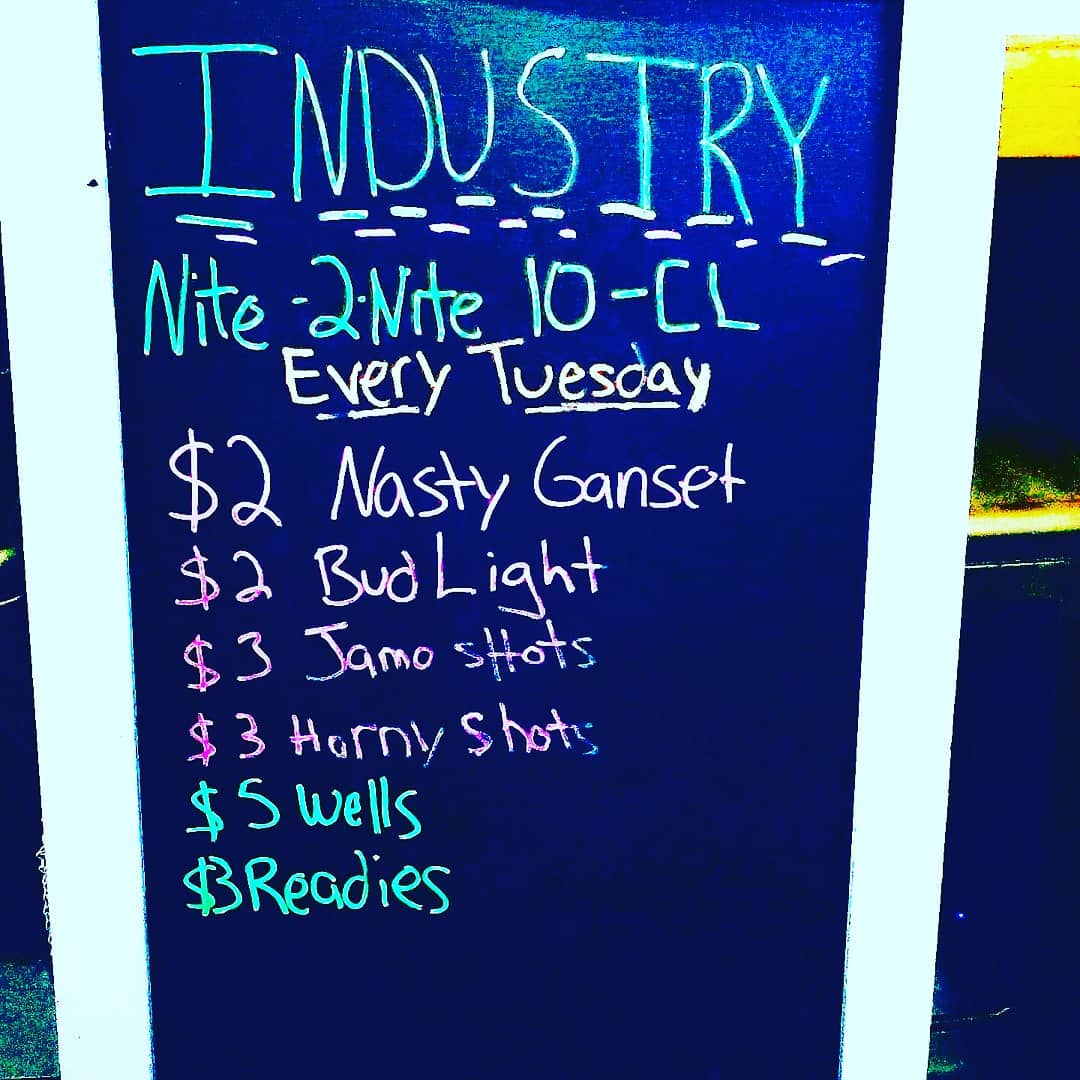 INDUSTRY
Nite -2-Nite 10-CL
Every Tuesday
$2 Nasty Ganset
$2 Bud Light
$3 Jamo sHots
$3 Horny Shots
$5 Wells
$3 Readies